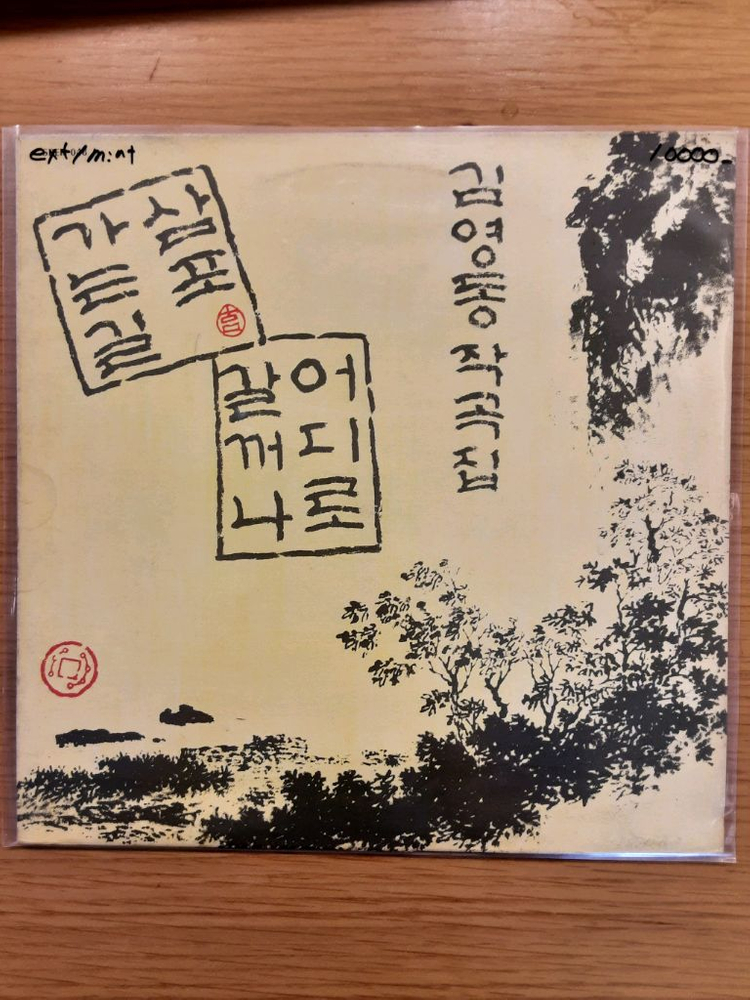 ex+/mint
10000-
삼포
가는길
어디로
갈꺼나
김영동 작곡집